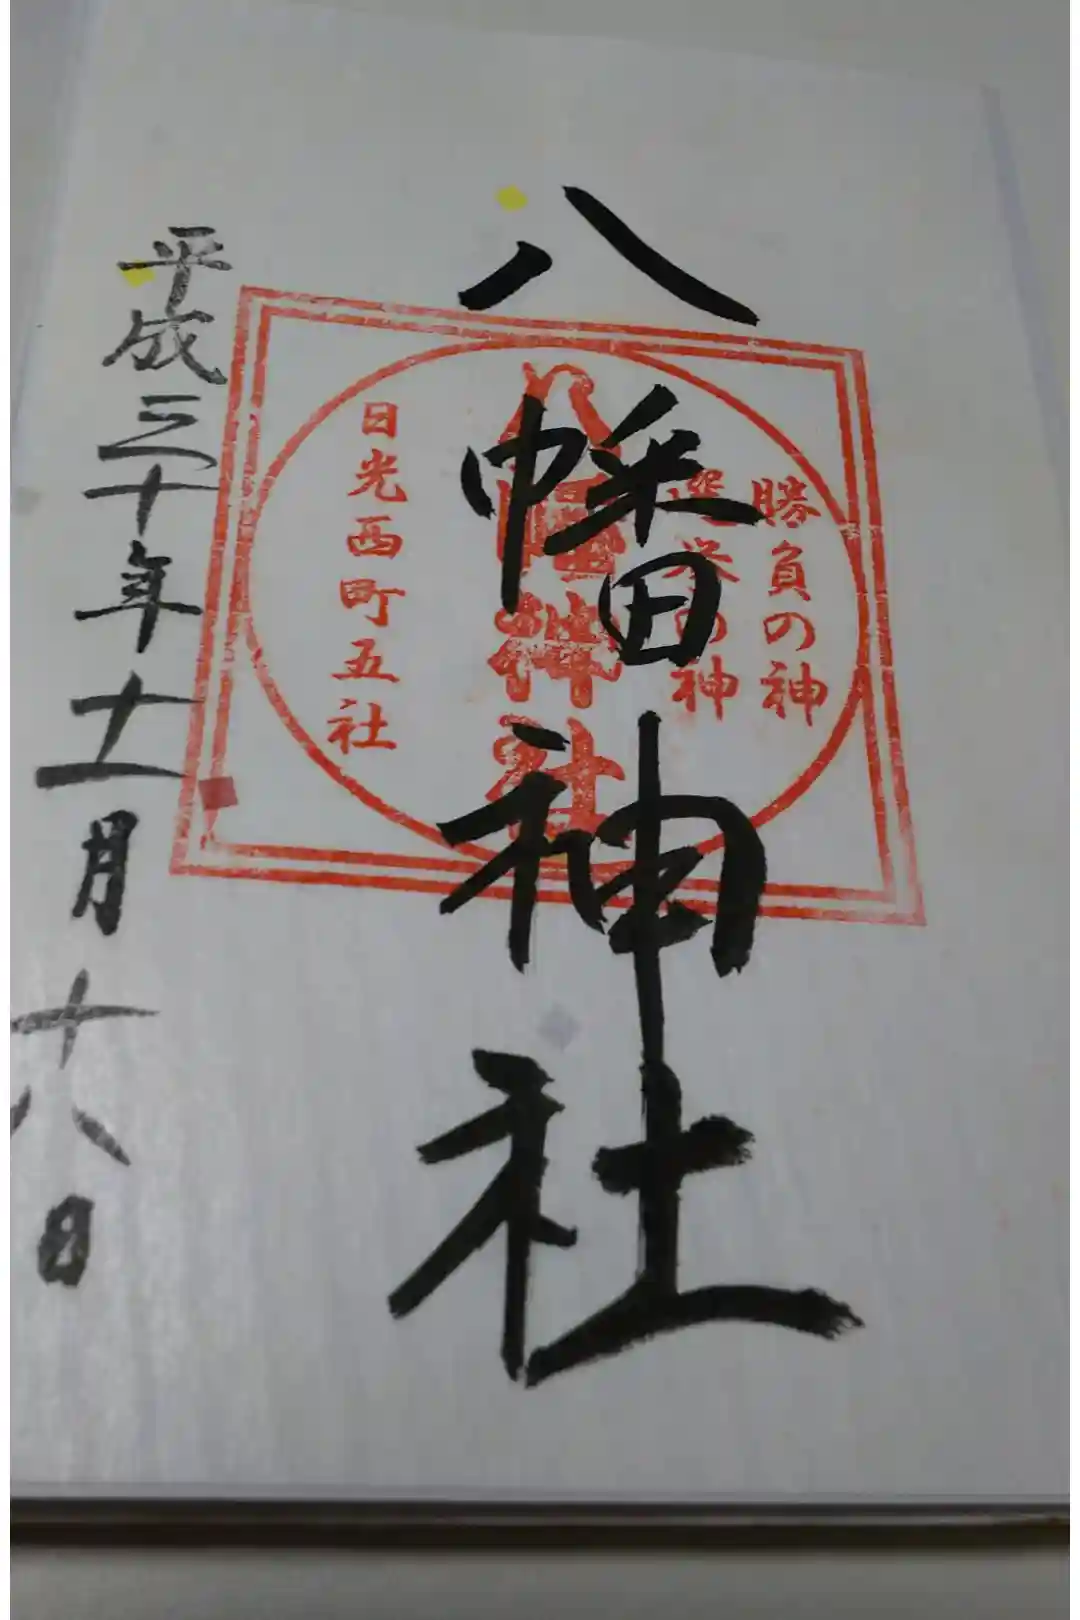 勝負の神
選挙の神
八幡神社
八幡神社
日光西町五社
平成三十年十一月十八日